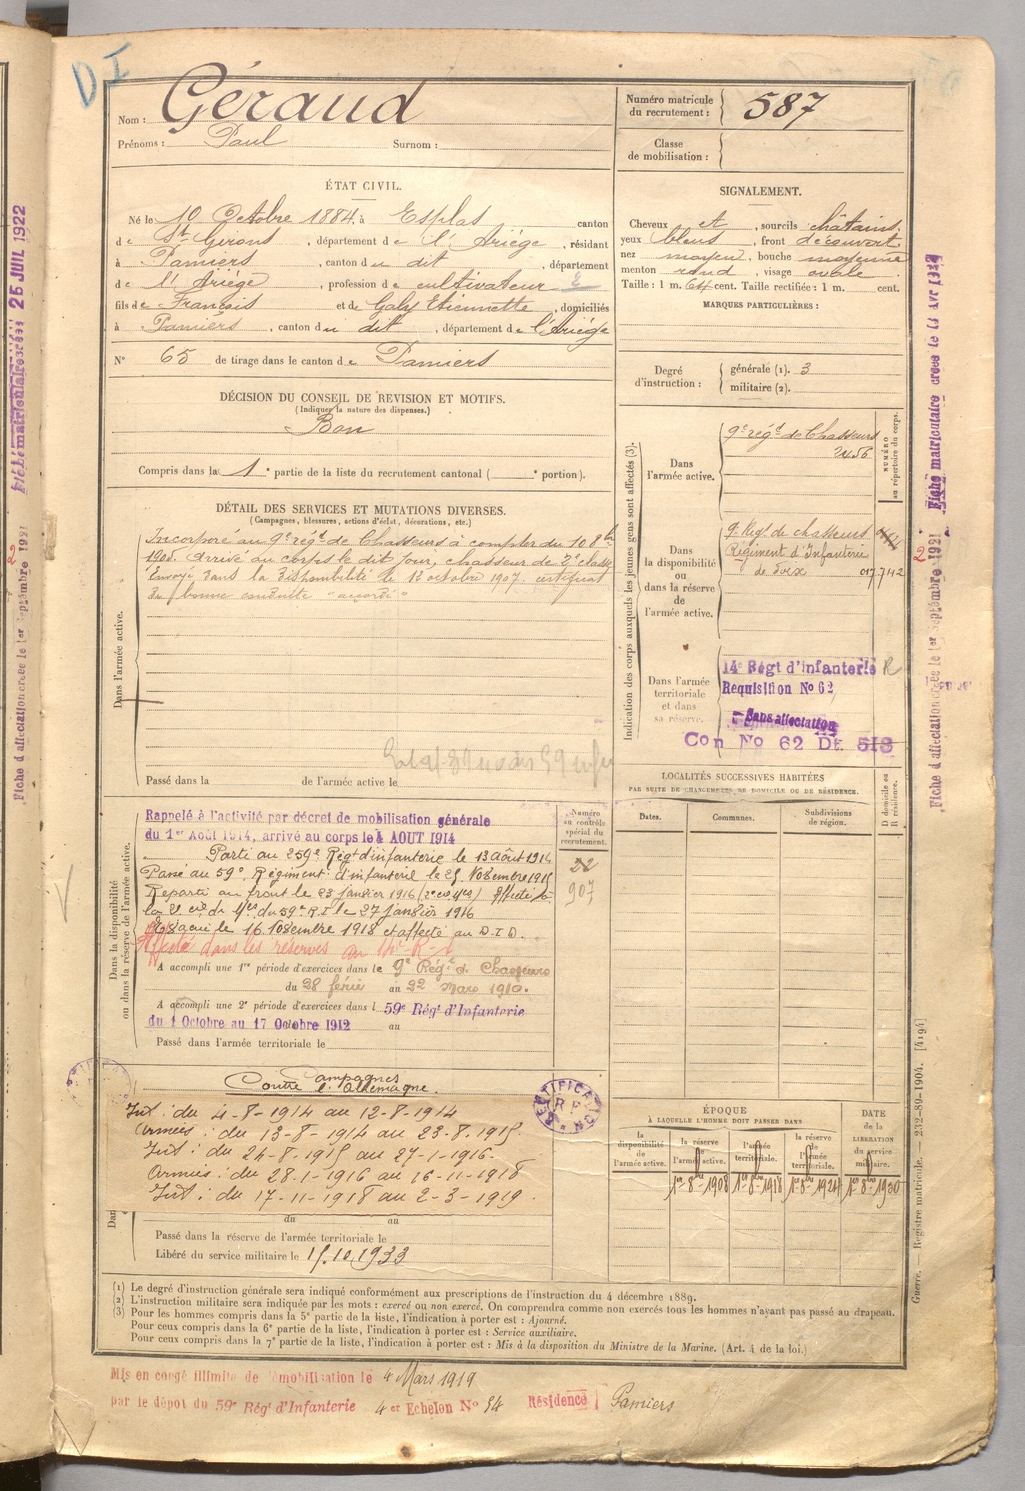 D I
Nom : Géraud
Prénoms : Paul Surnom :
Numéro matricule du recrutement : 587
Classe de mobilisation :
ÉTAT CIVIL.
Né le 10 Octobre 1884, à Esplas canton
de St Girons, département de l'Ariège, résidant
à Pamiers, canton du dit, département
de l'Ariège, profession de cultivateur
fils de François et de Galy Etiennette, domiciliés
à Pamiers, canton du dit, département de l'Ariège
N° 65 de tirage dans le canton de Pamiers
SIGNALEMENT.
Cheveux et, sourcils châtains,
yeux bleus, front découvert
nez moyen, bouche moyenne
menton rond, visage ovale
Taille : 1 m. 64 cent. Taille rectifiée : 1 m. cent.
MARQUES PARTICULIÈRES :
Degré d'instruction : générale (1). 3
militaire (2).
DÉCISION DU CONSEIL DE REVISION ET MOTIFS.
(Indiquer la nature des dispenses.)
Bon
Compris dans la 1e partie de la liste du recrutement cantonal ( e portion).
DÉTAIL DES SERVICES ET MUTATIONS DIVERSES.
(Campagnes, blessures, actions d'éclat, décorations, etc.)
Dans l'armée active.
Incorporé au 9e régt de Chasseurs à compter du 10 8bre
1905. arrivé au corps le dit jour, chasseur de 2e classe
Envoyé dans la disponibilité le 12 octobre 1907. certificat
de bonne conduite "accordé"
Passé dans la de l'armée active le
Indication des corps auxquels les jeunes gens sont affectés (3).
Dans l'armée active.
9e régt de Chasseurs
2456
NUMÉRO au répertoire du corps.
Dans la disponibilité ou dans la réserve de l'armée active.
9e Régt de chasseurs
Régiment d'Infanterie
de Foix 017.742
Dans l'armée territoriale et dans sa réserve.
14e Régt d'infanterie R
Requisition No 62
Sans affectation
Con No 62 Dt 513
LOCALITÉS SUCCESSIVES HABITÉES
PAR SUITE DE CHANGEMENTS DE DOMICILE OU DE RÉSIDENCE.
Dates. Communes. Subdivisions de région. D domicile ou R résidence.
Dans la disponibilité ou dans la réserve de l'armée active.
Numéro au contrôle spécial du recrutement.
22
907
Rappelé à l'activité par décret de mobilisation générale
du 1er Août 1914, arrivé au corps le 4 AOUT 1914
Parti au 259e Régt d'infanterie le 13 août 1914
Passé au 59e Régiment d'infanterie le 25 Novembre 1915
Reparti au front le 23 janvier 1916 Affecté à
la 21 cie du 59e R.I le 27 janvier 1916
Evacué le 16 Novembre 1918 et affecté au D.I.D.
Affecté dans les réserves au 14e R.I
A accompli une 1re période d'exercices dans le 9e Régt de Chasseurs
du 28 février au 22 Mars 1910.
A accompli une 2e période d'exercices dans l 59e Régt d'Infanterie
du 1 Octobre au 17 Octobre 1912 au
Passé dans l'armée territoriale le
Campagnes
Contre l'Allemagne.
Int : du 4-8-1914 au 12-8-1914
Armées : du 13-8-1914 au 23-8-1915
Int : du 24-8-1915 au 27-1-1916.
Armées : du 28-1-1916 au 16-11-1918
Int : du 17-11-1918 au 2-3-1919.
RECTIFICATION R F
du au
Passé dans la réserve de l'armée territoriale le
Libéré du service militaire le 15.10.1933
ÉPOQUE
À LAQUELLE L'HOMME DOIT PASSER DANS
la disponibilité de l'armée active. la réserve de l'armée active. l'armée territoriale. la réserve de l'armée territoriale. DATE de la LIBÉRATION du service militaire.
1er 8bre 1908 1er 8bre 1918 1er 8bre 1924 1er 8bre 1930
(1) Le degré d'instruction générale sera indiqué conformément aux prescriptions de l'instruction du 4 décembre 1889.
(2) L'instruction militaire sera indiquée par les mots : exercé ou non exercé. On comprendra comme non exercés tous les hommes n'ayant pas passé au drapeau.
(3) Pour les hommes compris dans la 5e partie de la liste, l'indication à porter est : Ajourné.
Pour ceux compris dans la 6e partie de la liste, l'indication à porter est : Service auxiliaire.
Pour ceux compris dans la 7e partie de la liste, l'indication à porter est : Mis à la disposition du Ministre de la Marine. (Art. 4 de la loi.)
Mis en congé illimité de démobilisation le 4 Mars 1919
par le dépôt du 59e Régt d'Infanterie 4e Echelon N° 54 Résidence Pamiers
Guerre. — Registre matricule. — 232-89-1904. [4194]
Fiche matriculaire créée 25 JUIL 1922
Fiche d'affectation créée le 1er Septembre 1921
Fiche matriculaire créée le
Fiche d'affectation créée le 1er Septembre 1921